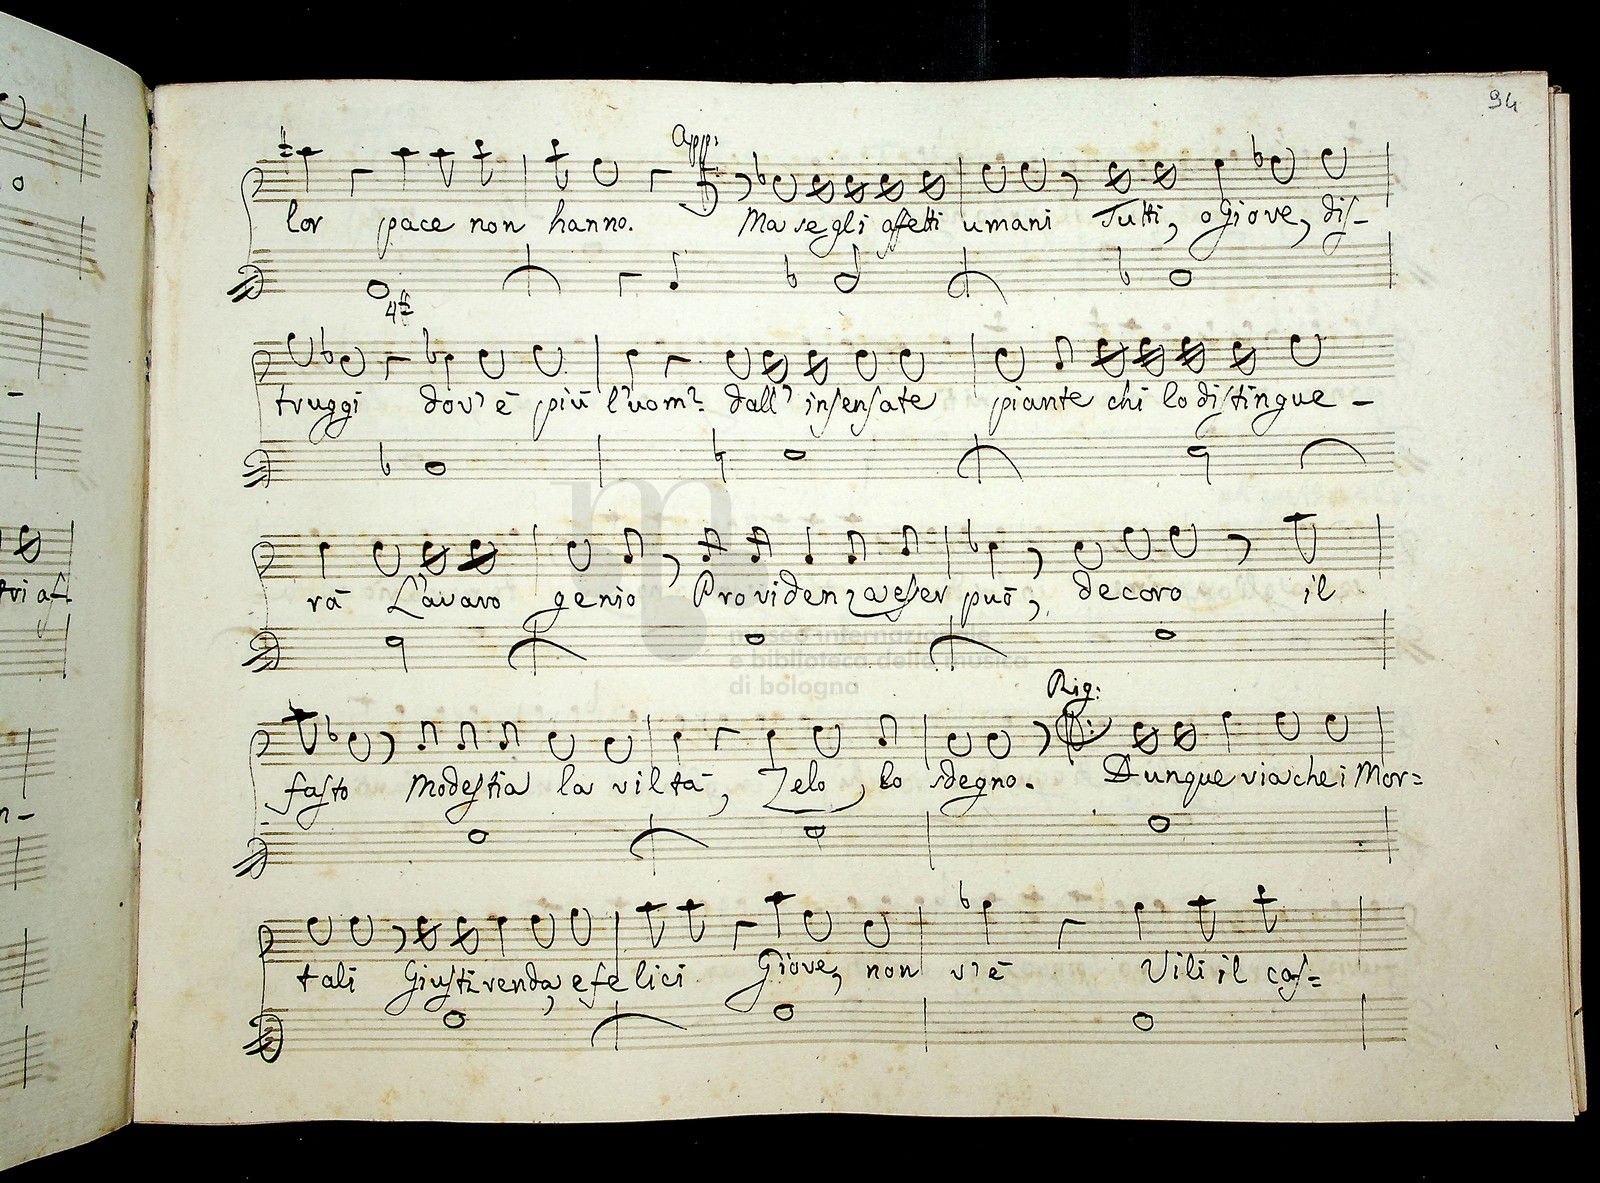 94
App:
lor pace non hanno. Ma se gli affetti umani Tutti, o Giove, dis-
4
truggi dov'è più l'uom? dall' insensate piante chi lo distingue -
rà L'avaro genio Providenza esser può, decoro il
museo internazionale
e biblioteca della musica
di bologna
Rig:
fasto Modestia la viltà, Zelo, lo sdegno. Dunque via che i Mor=
tali Giusti renda, e felici Giove, non v'è Vili il cas=
tri af-
n-